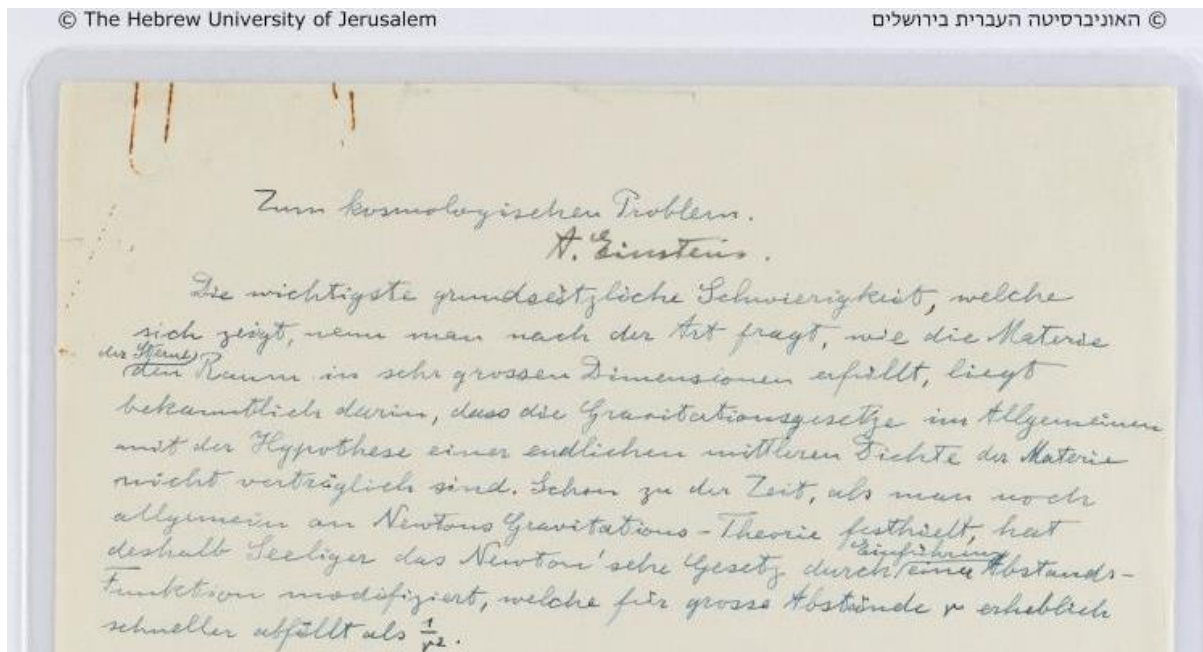 © The Hebrew University of Jerusalem
© האוניברסיטה העברית בירושלים
Zum kosmologischen Problem.
A. Einstein.
Die wichtigste grundsätzliche Schwierigkeit, welche
sich zeigt, wenn man nach der Art fragt, wie die Materie
der Sterne
den Raum in sehr grossen Dimensionen erfüllt, liegt
bekanntlich darin, dass die Gravitationsgesetze im Allgemeinen
mit der Hypothese einer endlichen mittleren Dichte der Materie
nicht verträglich sind. Schon zu der Zeit, als man noch
allgemein an Newtons Gravitations-Theorie festhielt, hat
Einführung
deshalb Seeliger das Newton'sche Gesetz durch einer Abstands-
Funktion modifiziert, welche für grosse Abstände r erheblich
schneller abfällt als 1/r².